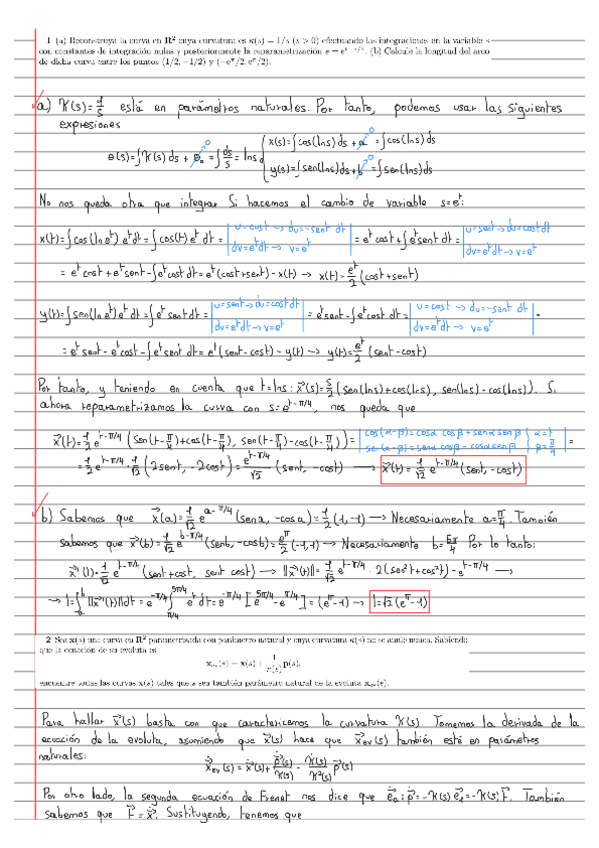 1 (a) Reconstruya la curva en R² cuya curvatura es κ(s) = 1/s (s > 0) efectuando las integraciones en la variable s
con constantes de integración nulas y posteriormente la reparametrización s = e^{t−π/4}. (b) Calcule la longitud del arco
de dicha curva entre los puntos (1/2, −1/2) y (−e^π/2, e^π/2).
a) K(s)=1/s está en parámetros naturales. Por tanto, podemos usar las siguientes
expresiones
θ(s)=∫K(s)ds + θ₀ = ∫ds/s = ln s { x(s)=∫cos(ln s)ds + a = ∫cos(ln s)ds
y(s)=∫sen(ln s)ds + b = ∫sen(ln s)ds
No nos queda otra que integrar. Si hacemos el cambio de variable s=e^t:
x(t)=∫cos(ln e^t)e^t dt = ∫cos(t)e^t dt = | u=cost → du=-sent dt dv=e^t dt → v=e^t | = e^t cost + ∫e^t sent dt = | u=sent → du=cost dt dv=e^t dt → v=e^t |
= e^t cost + e^t sent - ∫e^t cost dt = e^t(cost+sent) - x(t) → x(t)= e^t/2 (cost+sent)
y(t)=∫sen(ln e^t)e^t dt = ∫e^t sent dt = | u=sent → du=cost dt dv=e^t dt → v=e^t | = e^t sent - ∫e^t cost dt = | u=cost → du=-sent dt dv=e^t dt → v=e^t | =
= e^t sent - e^t cost - ∫e^t sent dt = e^t(sent-cost) - y(t) → y(t)= e^t/2 (sent-cost)
Por tanto, y teniendo en cuenta que t=ln s: x⃗(s)= s/2 (sen(ln s)+cos(ln s), sen(ln s)-cos(ln s)). Si
ahora reparametrizamos la curva con s=e^{t-π/4}, nos queda que
x⃗(t)= 1/2 e^{t-π/4} (sen(t-π/4)+cos(t-π/4), sen(t-π/4)-cos(t-π/4)) = | cos(α-β)=cosα cosβ + senα senβ sen(α-β)=senα cosβ - cosα senβ { α=t β=π/4 | =
= 1/2 e^{t-π/4} · 1/√2 (2sent, -2cost) = e^{t-π/4}/√2 (sent, -cost) → x⃗(t)= 1/√2 e^{t-π/4} (sent, -cost)
b) Sabemos que x⃗(a)= 1/√2 e^{a-π/4} (sena, -cosa) = 1/2 (1,-1) → Necesariamente a=π/4. También
sabemos que x⃗(b)= 1/√2 e^{b-π/4} (senb, -cosb) = e^π/2 (-1,1) → Necesariamente b=5π/4. Por lo tanto:
x⃗'(t)= 1/√2 e^{t-π/4} (sent+cost, sent cost) → ||x⃗'(t)||= 1/√2 e^{t-π/4} · 2(sen²t+cos²t) = e^{t-π/4} →
→ l=∫_a^b ||x⃗'(t)||dt = e^{-π/4} ∫_{π/4}^{5π/4} e^t dt = e^{-π/4} [e^{5π/4} - e^{π/4}] = (e^π-1) → l=√2(e^π-1)
2 Sea x(s) una curva en R² parametrizada con parámetro natural y cuya curvatura κ(s) no se anula nunca. Sabiendo
que la ecuación de su evoluta es
x_ev(s) = x(s) + 1/κ(s) p(s),
encuentre todas las curvas x(s) tales que s sea también parámetro natural de la evoluta x_ev(s).
Para hallar x⃗(s) basta con que caractericemos la curvatura K(s). Tomemos la derivada de la
ecuación de la evoluta, asumiendo que x⃗(s) hace que x⃗_ev(s) también esté en parámetros
naturales:
ẋ⃗_ev(s) = ẋ⃗(s) + ṗ⃗(s)/K(s) - K̇(s)/K²(s) p⃗(s)
Por otro lado, la segunda ecuación de Frenet nos dice que ė⃗₂ = ṗ⃗ = -K(s) e⃗₁ = -K(s) t⃗. También
sabemos que t⃗ = ẋ⃗. Sustituyendo, tenemos que